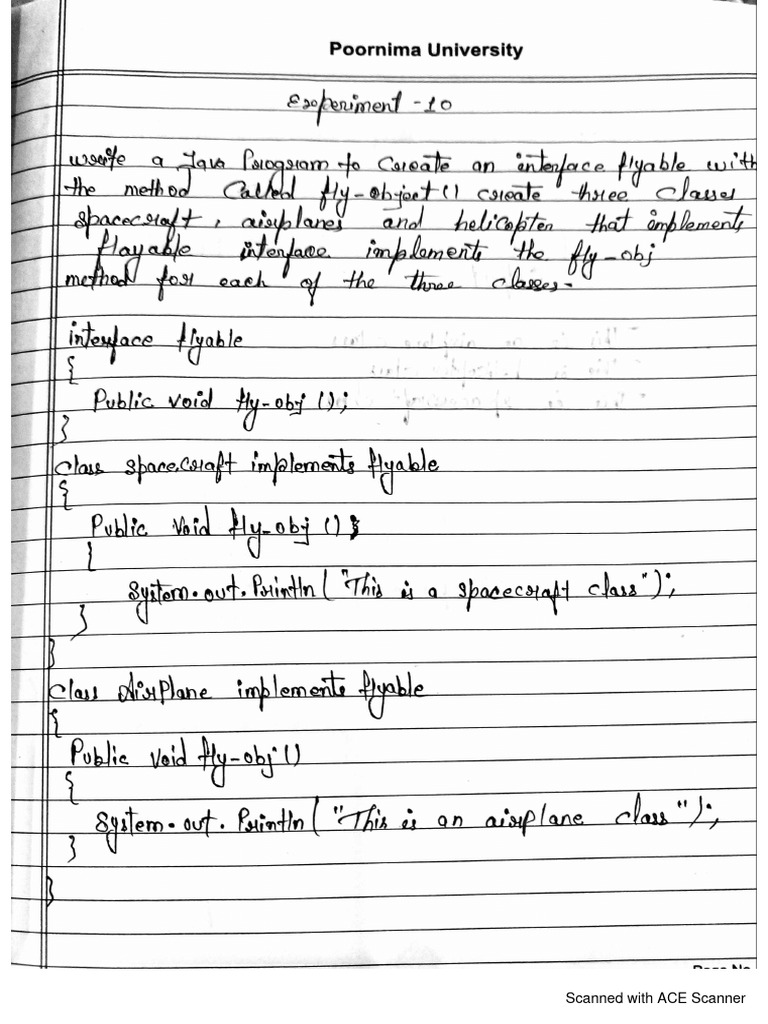 Poornima University
Experiment - 10
write a Java Program to create an interface flyable with
the method Called fly-object() create three classes
spacecraft, airplanes and helicopter that implements
flayable interface implements the fly-obj
method for each of the three classes.
interface flyable
{
Public void fly-obj ();
}
class spacecraft implements flyable
{
Public void fly-obj ()
{
System.out.Println("This is a spacecraft class");
}
}
class AirPlane implements flyable
{
Public void fly-obj ()
{
System.out.Println("This is an airplane class");
}
}
Page No
Scanned with ACE Scanner